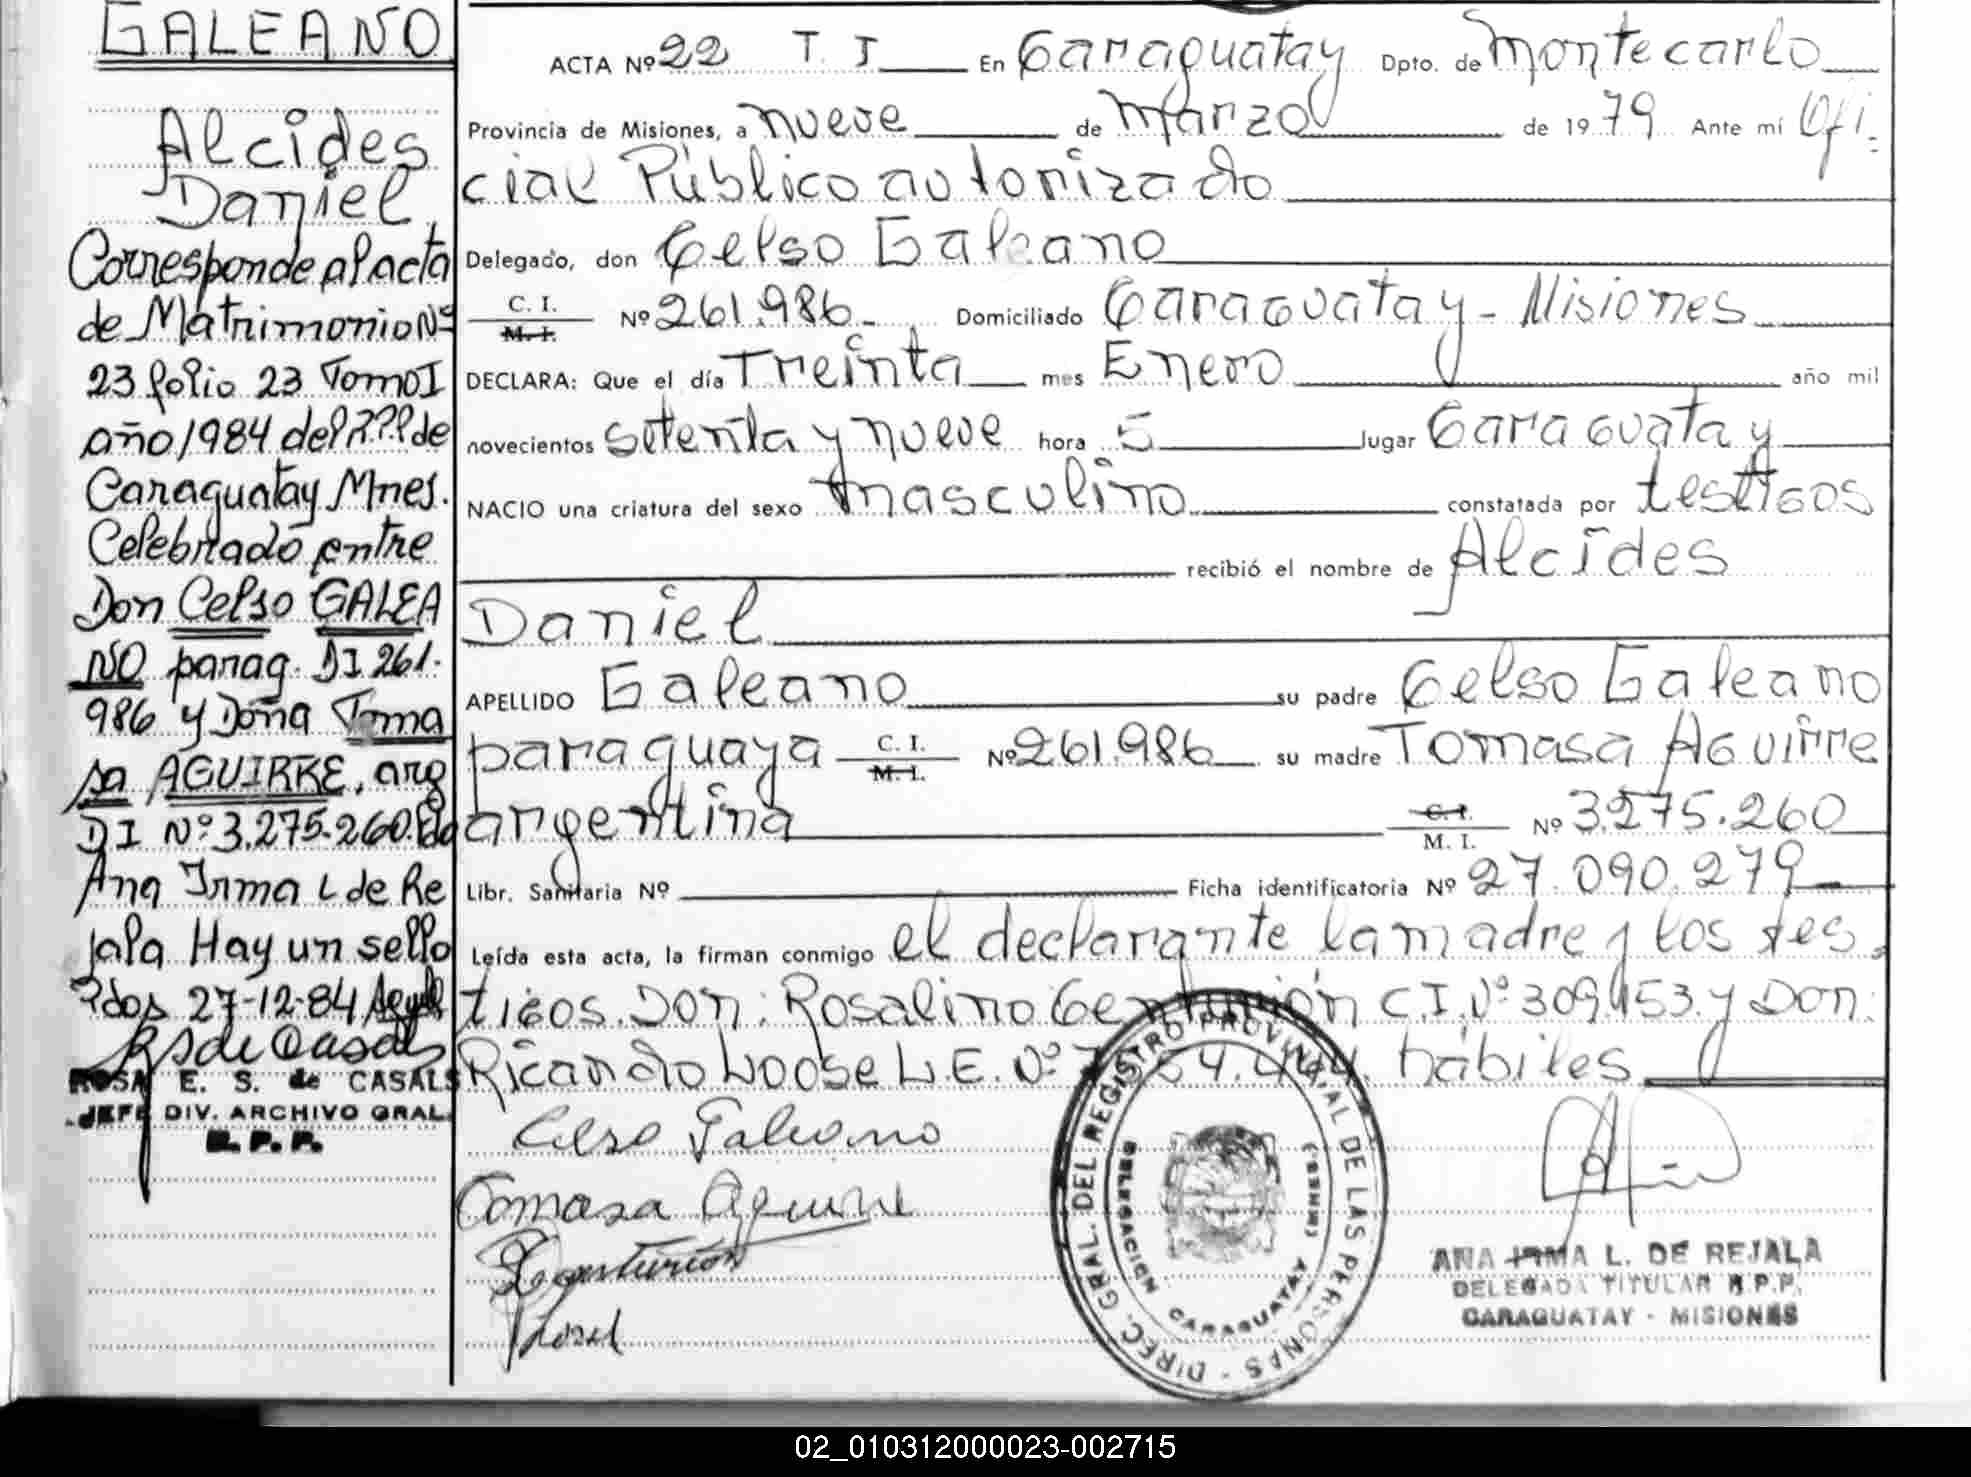 GALEANO
Alcides
Daniel
Corresponde al acta
de Matrimonio Nº
23 folio 23 Tomo I
año 1984 del R.P.P de
Caraguatay Mnes.
Celebrado entre
Don Celso GALEA
NO parag. DI 261.
986 y Doña Toma
sa AGUIRRE, arg
DI Nº 3.275.260. Fdo
Ana Irma L de Re
jala Hay un sello
Pdas 27-12-84
ROSA E. S. de CASALS
JEFE DIV. ARCHIVO GRAL.
R. P. P.
ACTA Nº 22 T. I En Caraguatay Dpto. de Montecarlo
Provincia de Misiones, a nueve de Marzo de 1979 Ante mí Ofi-
cial Público autorizado
Delegado, don Celso Galeano
C. I. M. I. Nº 261.986 Domiciliado Caraguatay - Misiones
DECLARA: Que el día Treinta mes Enero año mil
novecientos setenta y nueve hora 5 lugar Caraguatay
NACIO una criatura del sexo masculino constatada por testigos
recibió el nombre de Alcides
Daniel
APELLIDO Galeano su padre Celso Galeano
paraguaya C. I. M. I. Nº 261.986 su madre Tomasa Aguirre
argentina C. I. M. I. Nº 3.275.260
Libr. Sanitaria Nº Ficha identificatoria Nº 27.090.279
Leída esta acta, la firman conmigo el declarante la madre y los tes-
tigos. Don: Rosalino Centurión C.I. Nº 309.153. y Don:
Ricardo Woose L.E. Nº 64.444. hábiles
Celso Galeano
Tomasa Aguirre
R Centurión
DIREC. GRAL. DEL REGISTRO PROVINCIAL DE LAS PERSONAS
DELEGACION CARAGUATAY (MNES.)
ANA IRMA L. DE REJALA
DELEGADA TITULAR R.P.P.
CARAGUATAY - MISIONES
02_010312000023-002715